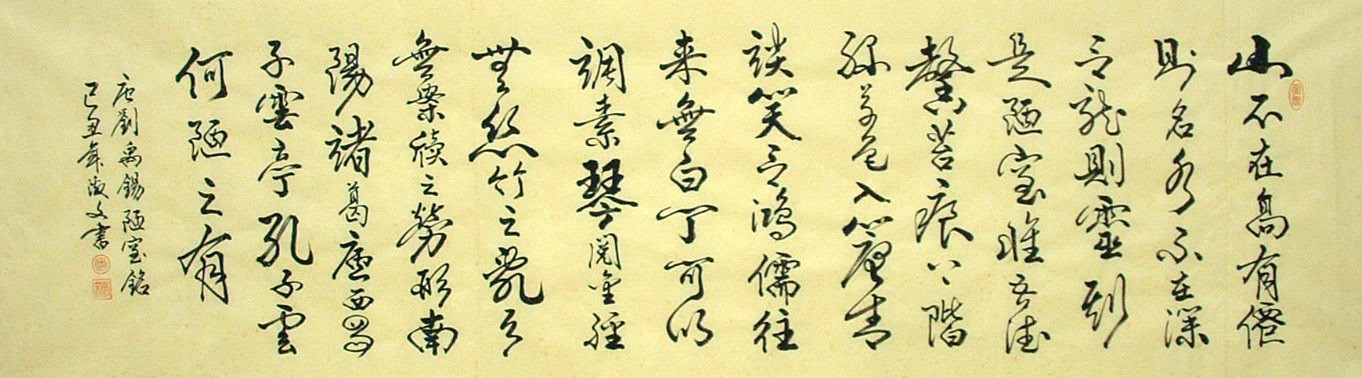 山不在高有僊
則名水不在深
有龍則靈斯
是陋室惟吾德
馨苔痕上階
綠草色入簾青
談笑有鴻儒往
来無白丁可以
調素琴閱金經
無絲竹之亂耳
無案牘之勞形南
陽諸葛廬西蜀
子雲亭孔子雲
何陋之有
唐劉禹錫陋室銘
己丑年淑文書